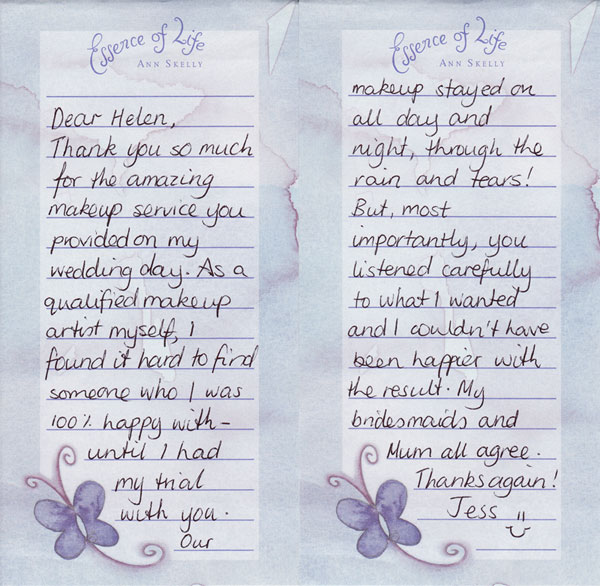 Essence of Life
ANN SKELLY
Dear Helen,
Thank you so much
for the amazing
makeup service you
provided on my
wedding day. As a
qualified makeup
artist myself, I
found it hard to find
someone who I was
100% happy with -
until I had
my trial
with you.
Our
Essence of Life
ANN SKELLY
makeup stayed on
all day and
night, through the
rain and tears!
But, most
importantly, you
listened carefully
to what I wanted
and I couldn't have
been happier with
the result. My
bridesmaids and
Mum all agree.
Thanks again!
Jess